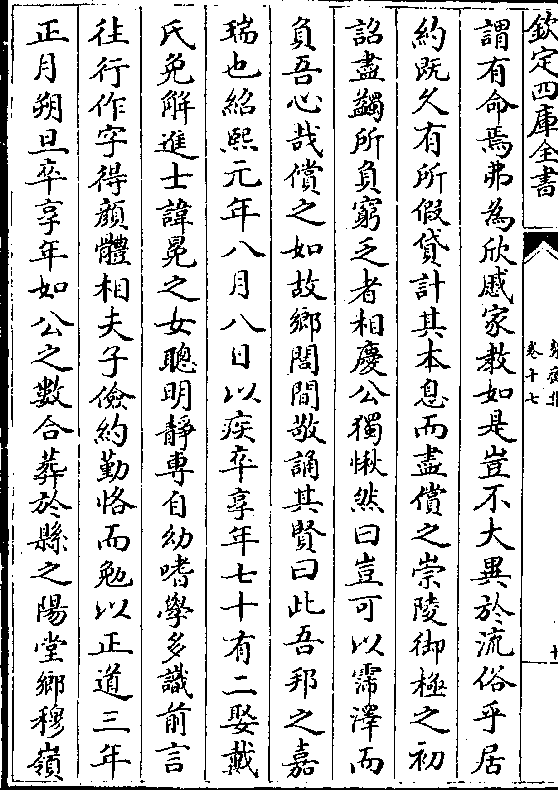 欽定四庫全書
卷十七
謂有命焉弗為欣戚家教如是豈不大異於流俗乎居
約既久有所假貸計其本息而盡償之崇陵御極之初
詔盡蠲所負窮乏者相慶公獨愀然曰豈可以霈澤而
負吾心哉償之如故鄉閭間敬誦其賢曰此吾邦之嘉
瑞也紹熙元年八月八日以疾卒享年七十有二娶戴
氏免解進士諱冕之女聰明靜專自幼嗜學多識前言
往行作字得顏體相夫子儉約勤恪而勉以正道三年
正月朔旦卒享年如公之數合葬於縣之陽堂鄉穆嶺